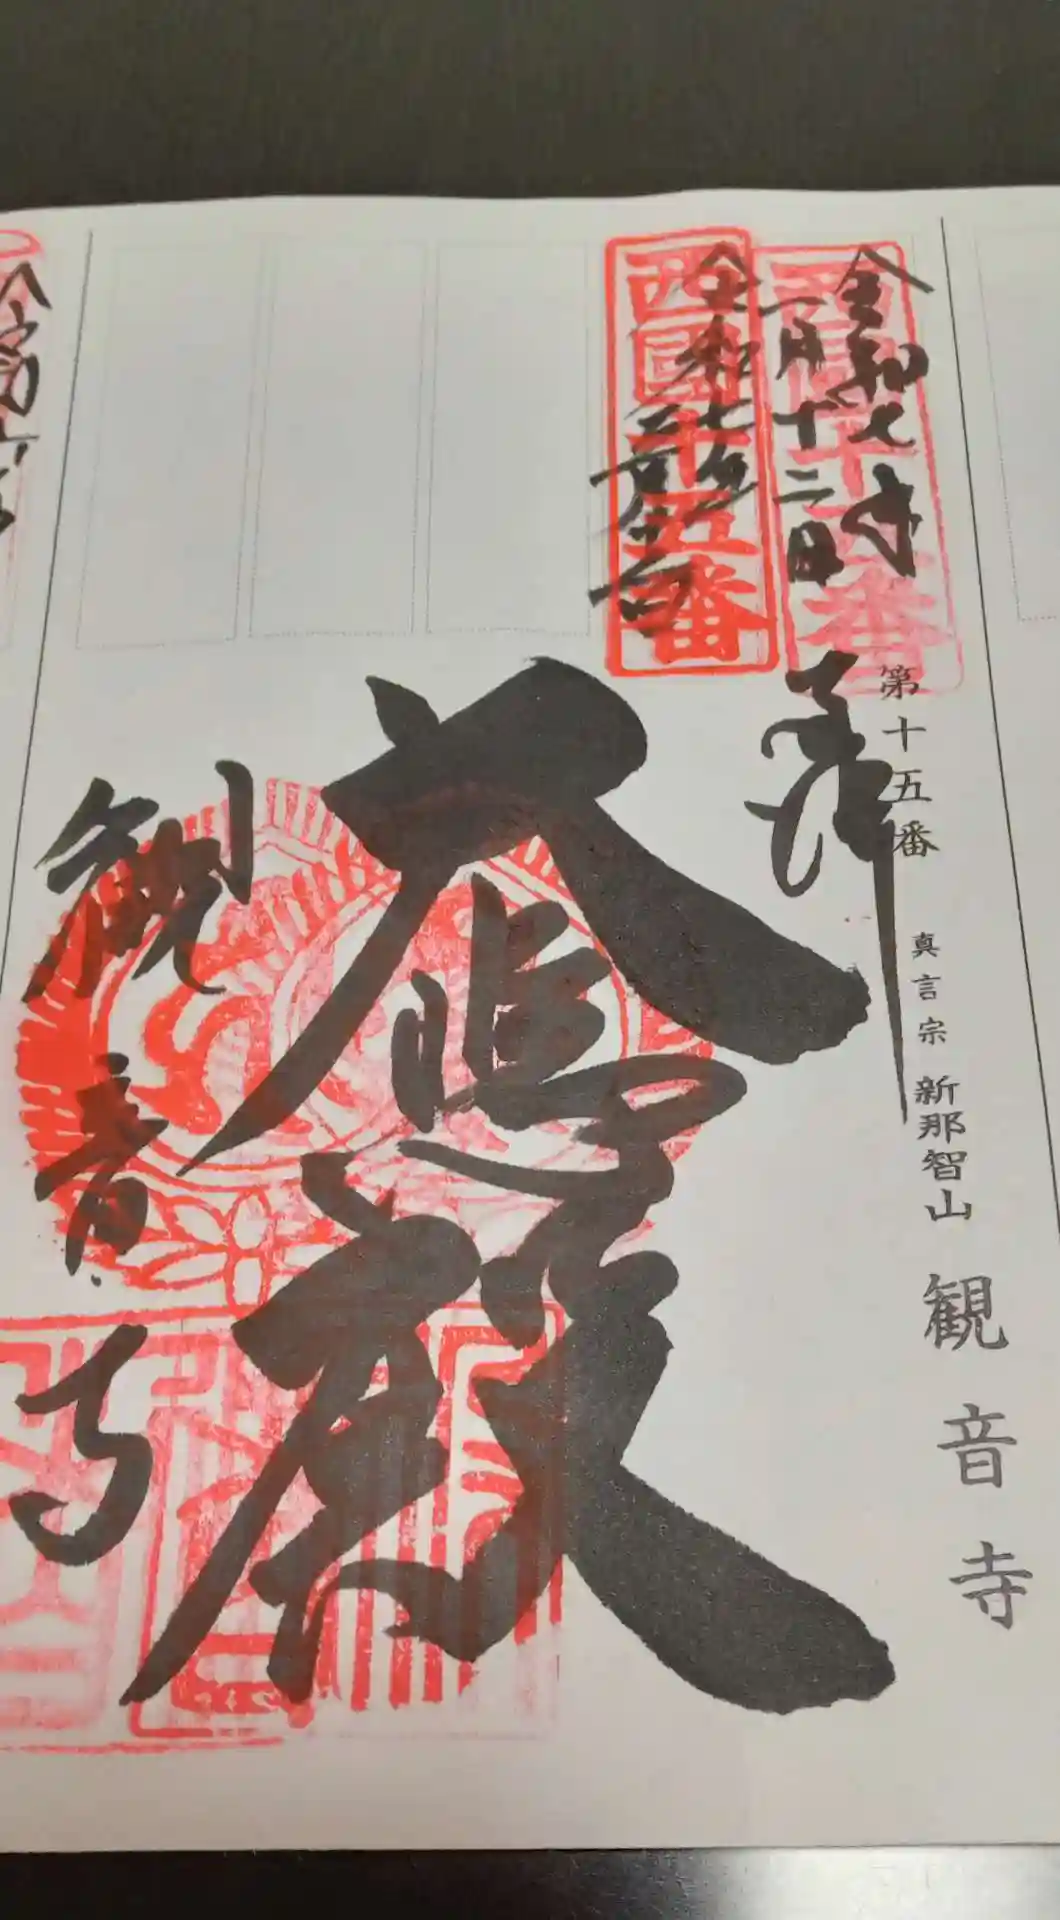 第十五番 真言宗 新那智山 観音寺
令和七年
一月十二日
西國十五番
奉拝
令和七年
西國十五番
大悲殿
観音寺